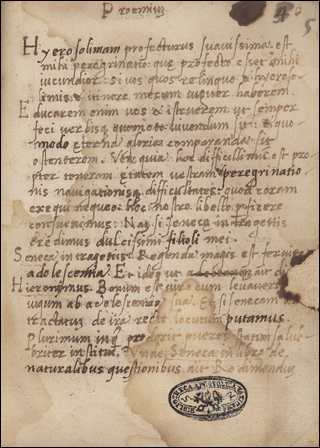 Proemium
Hyerosolimam profecturus suavissima est
mihi peregrinatio: que profecto esset mihi
iucundior: Si vos quos relinquo Hyeroso
limis et itinere mecum iugiter haberem.
Educarem enim vos et istruerem ut semper
feci verbis quomodo vivendum sit: et quo
modo eterna gloria comparanda sit
ostenterem. Verum quia hoc difficillimum est pro
pter teneram etatem vestram: peregrinatio
nis navigationisque difficultates: quod coram
exequi nequeo: hoc nostro libello perficere
Nam si Senece in tragediis
credimus dulcissimi filioli mei.
Seneca in tragediis Regenda magis est
adolescentia. Et ideo ut
Hieronymus Bonum est viro cum levaverit
iugum ab adolescentia sua. Et si Senecam in
tractatu de ira recte locutum putamus.
Plurimum proderit pueros statim salu
briter institui. Unde Seneca in libro de
naturalibus questionibus ait